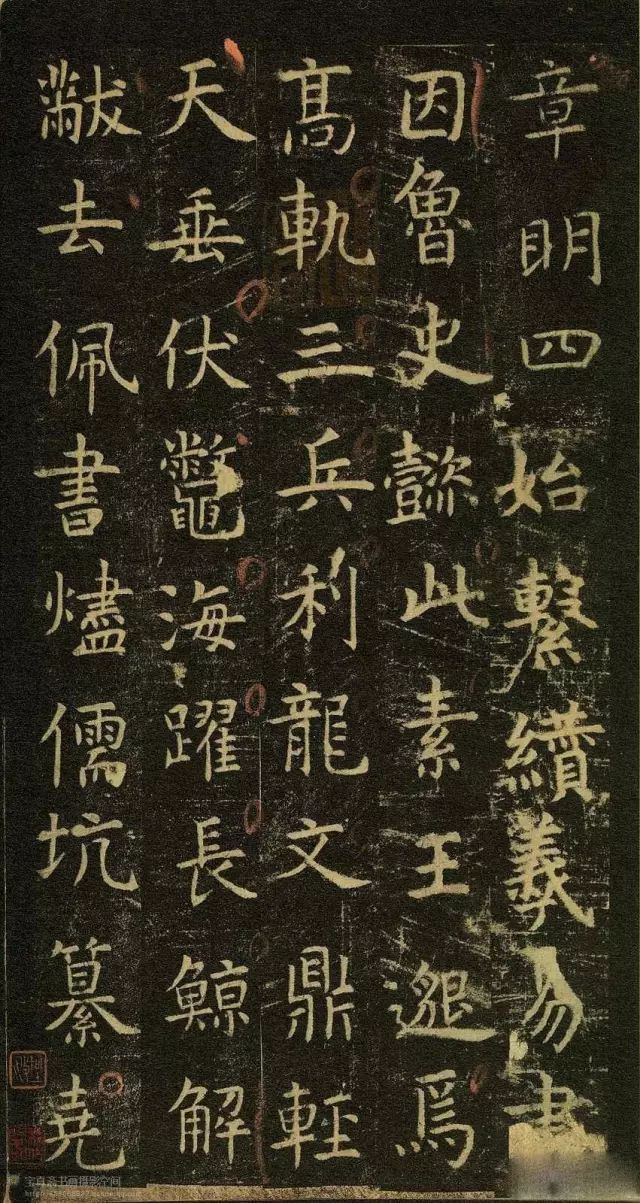 章明四始繫續羲易書
因魯史懿此素王邈焉
高軌三兵利龍文鼎輕
天垂伏鼈海躍長鯨解
黻去佩書燼儒坑纂堯